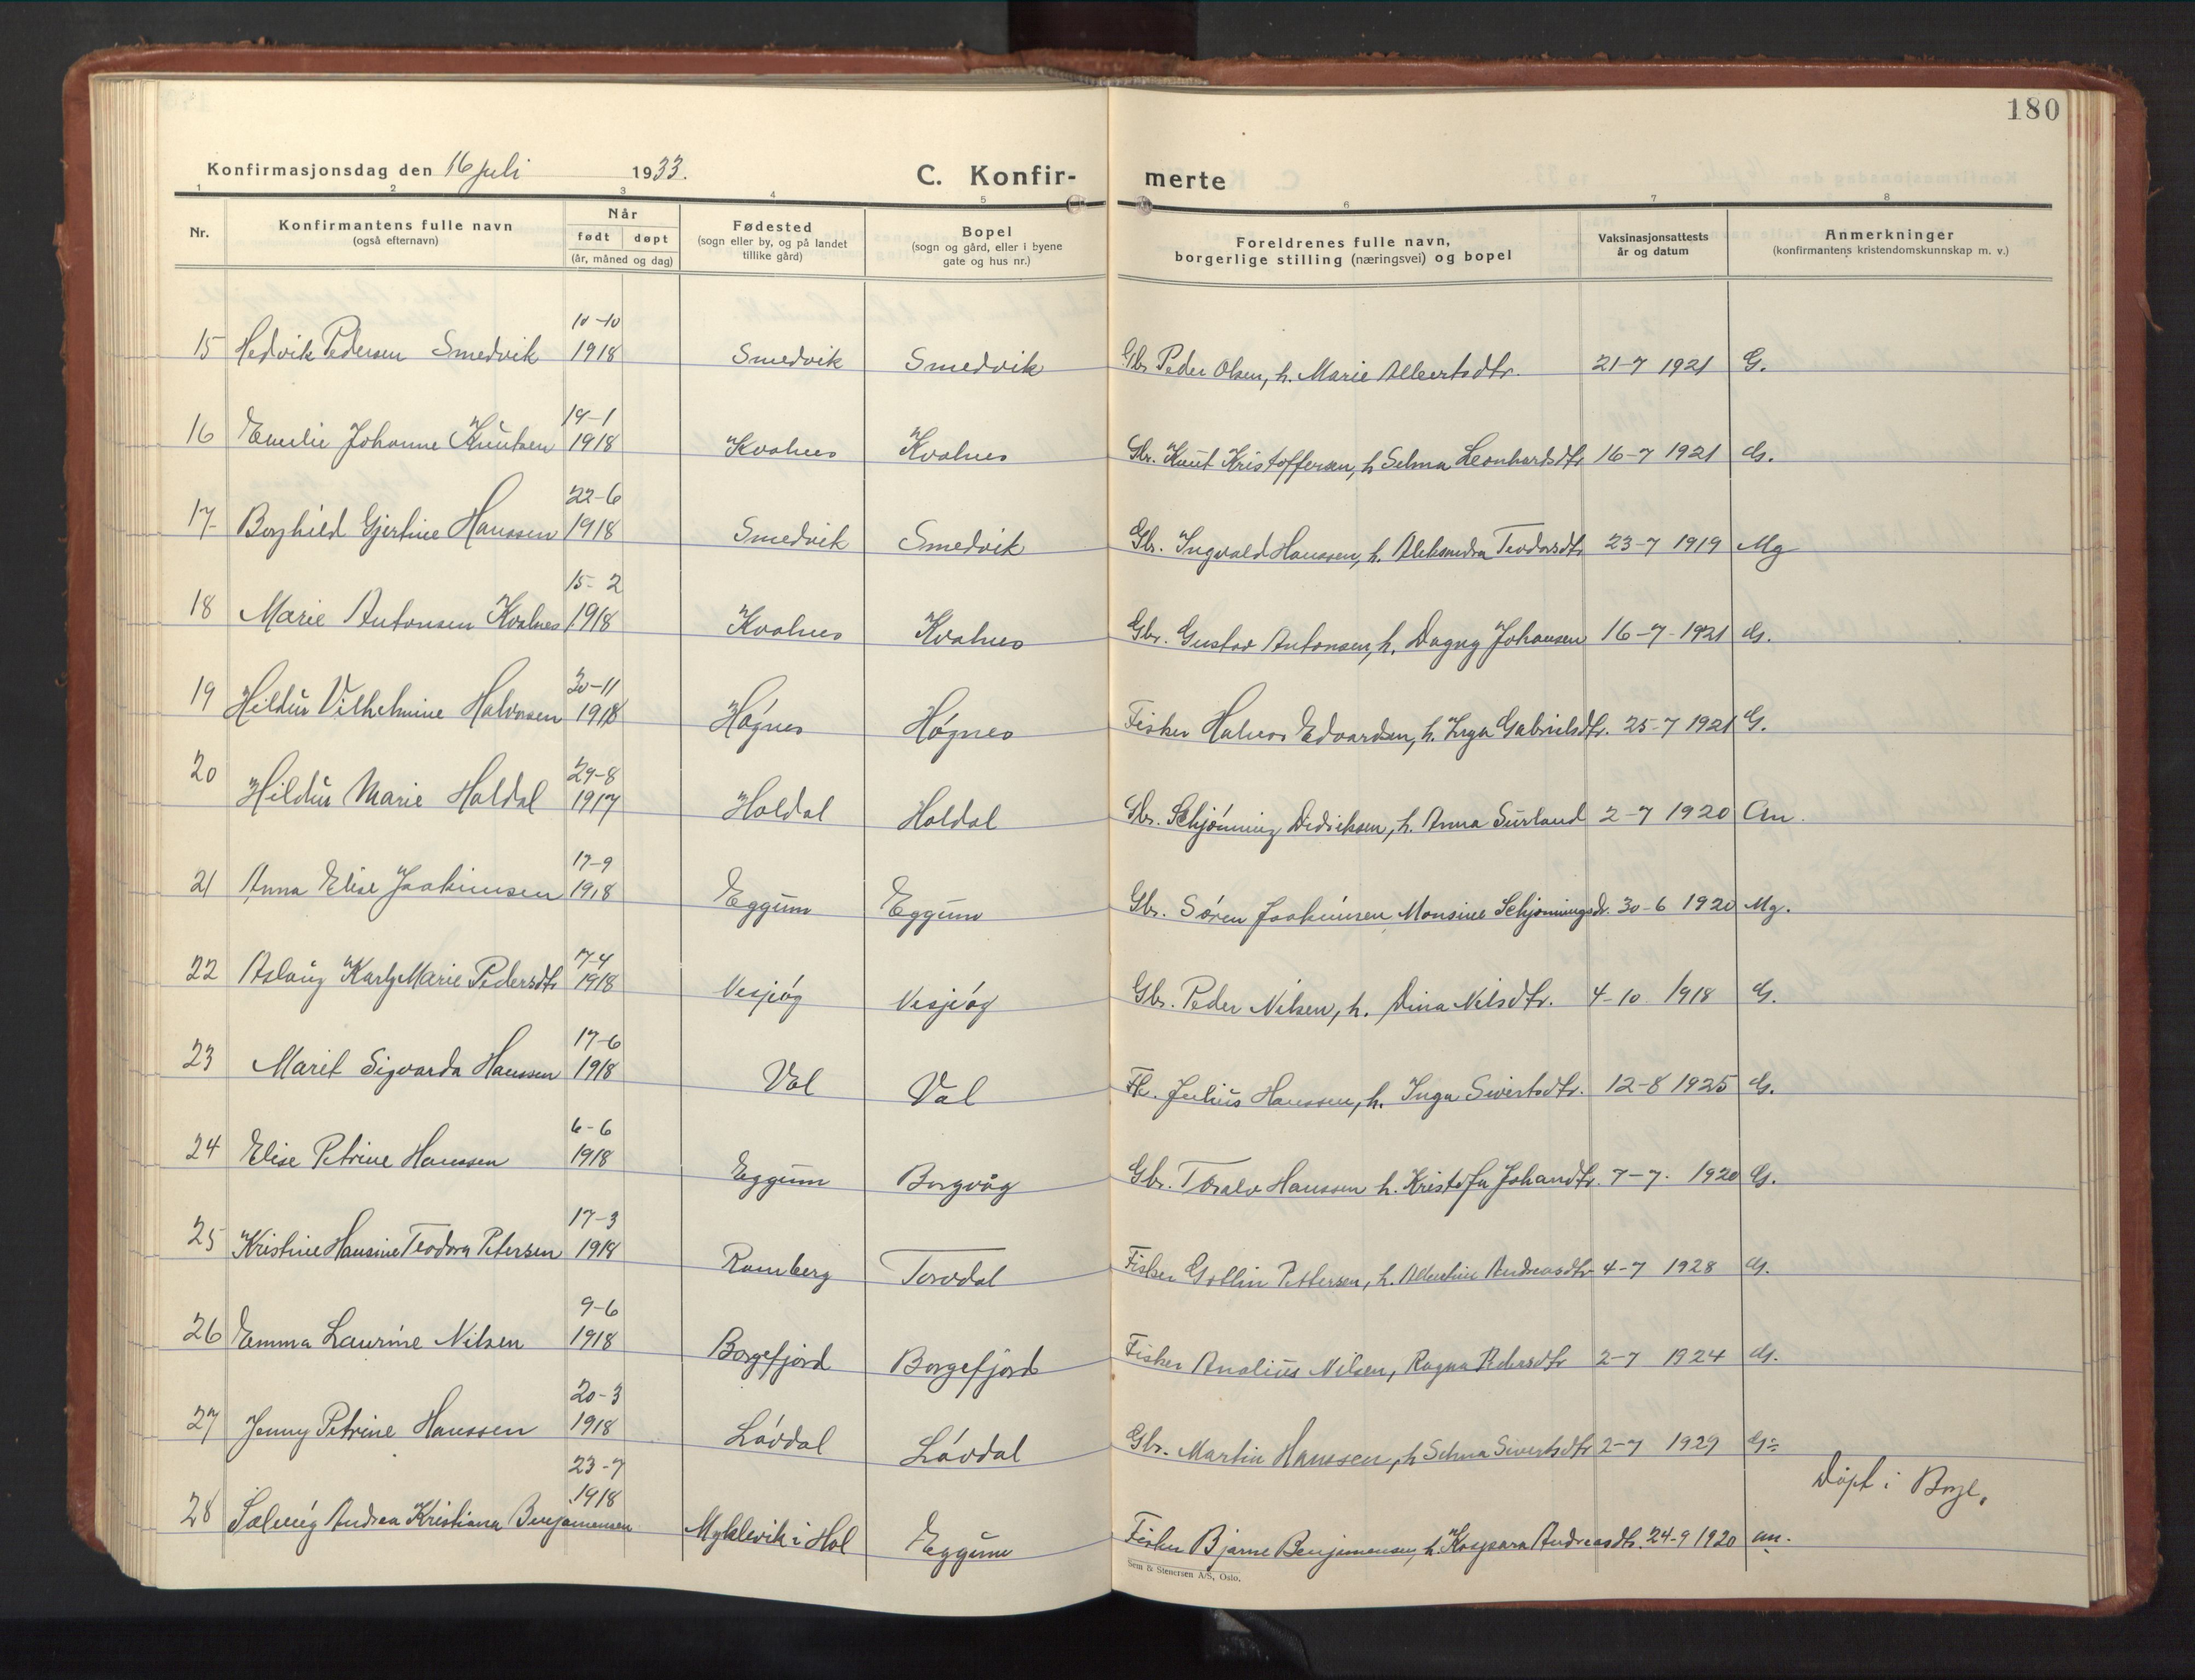 180
Konfirmasjonsdag den 16 juli 1933. C. Konfir- merte
1 2 3 4 5 6 7 8
Nr. Konfirmantens fulle navn (også efternavn) Når født døpt (år, måned og dag) Fødested (sogn eller by, og på landet tillike gård) Bopel (sogn og gård, eller i byene gate og hus nr.) Foreldrenes fulle navn, borgerlige stilling (næringsvei) og bopel Vaksinasjonsattests år og datum Anmerkninger (konfirmantens kristendomskunnskap m. v.)
10-10
15 Hedvik Pedersen Smedvik 1918 Smedvik Smedvik Gbr. Peder Olsen, h. Marie Albertsdtr. 21-7 1921 G.
14-1
16 Emilie Johanne Knutsen 1918 Kvalnes Kvalnes Gbr. Knut Kristoffersen, h. Selma Leonhardsdtr 16-7 1921 G.
22-6
17 Borghild Gjertine Hanssen 1918 Smedvik Smedvik Gbr. Ingvald Hanssen, h. Aleksandra Teodorsdtr 23-7 1919 Mg
15-2
18 Marie Antonsen Kvalnes 1918 Kvalnes Kvalnes Gbr. Gustav Antonsen, h. Dagny Johansen 16-7-1921 G.
30-11
19 Hildur Vilhelmine Halvorsen 1918 Høgnes Høgnes Fisker Halvor Edvardsen, h. Inga Gabrielsdtr. 25-7 1921 G.
29-8
20 Hildur Marie Haldal 1917 Haldal Haldal Gbr. Schjønning Didriksen, h. Anna Surland 2-7 1920 An.
17-9
21 Anna Elise Joakimsen 1918 Eggum Eggum Gbr. Søren Joakimsen Monsine Schjønningsdr. 30-6 1920 Mg.
7-4
22 Aslaug Karly Marie Pedersdtr 1918 Vesjeåg Vesjeåg Gbr. Peder Nilsen, h. Dina Nilsdtr. 4-10 1918 G.
17-6
23 Marit Sigvarda Hanssen 1918 Val Val Fk. Julius Hanssen, h. Inga Sivertsdtr. 12-8 1925 G.
6-6
24 Elise Petrine Hanssen 1918 Eggum Borgvåg Gbr. Toralv Hanssen h. Kristofa Johandtr. 7-7. 1920 G.
17-3
25 Kristine Hansine Teodora Petersen 1918 Ramberg Torvdal Fisker Gottlin Pettersen, h. Albertine Andreasdtr 4-7 1928 G.
9-6
26 Emma Laurine Nilsen 1918 Borgefjord Borgefjord Fisker Analius Nilsen, Ragna Pedersdtr 2-7 1924 G.
20-3
27 Jenny Petrine Hanssen 1918 Løvdal Løvdal Gbr. Martin Hanssen, h. Selma Sivertsdtr 2-7 1929 G÷
23-7
Døpt i Borge.
28 Solveig Andrea Kristiana Benjamensen 1918 Myklevik i Hol Eggum Fisker Bjarne Benjamensen, h. Kaspara Andreasdtr. 24-9 1920 an.
Sem & Stenersen A/S, Oslo.